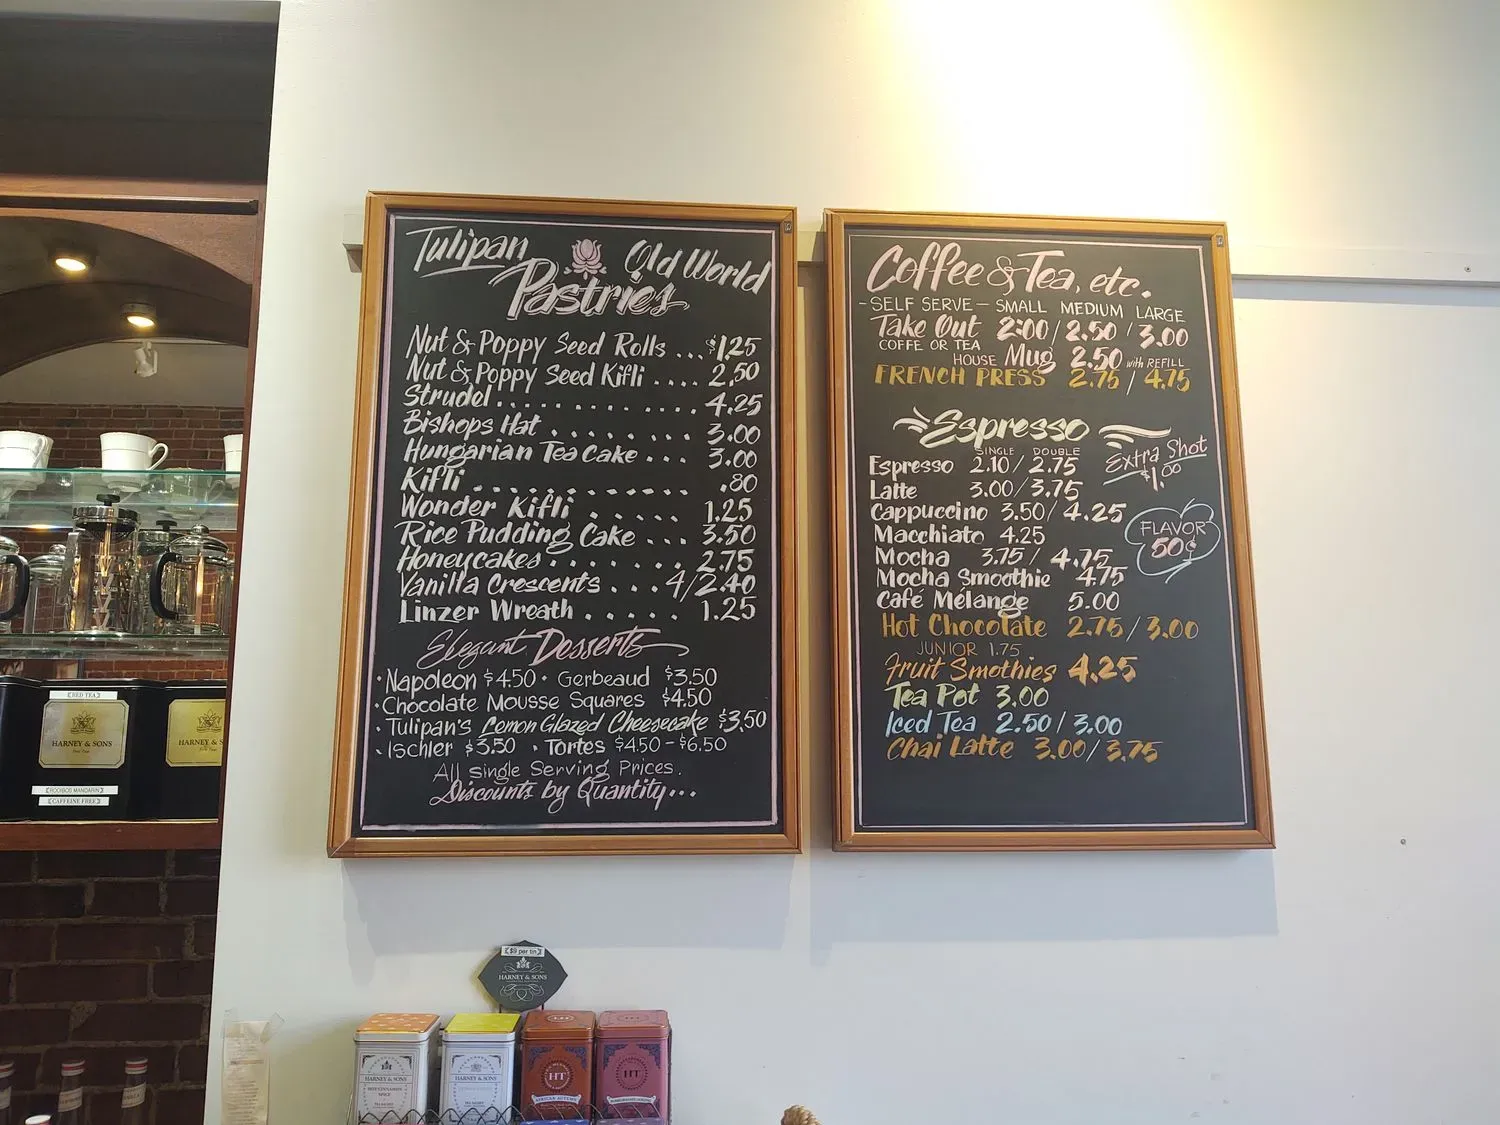 Tulipan Old World
Pastries
Nut & Poppy Seed Rolls ... $1.25
Nut & Poppy Seed Kifli .... 2.50
Strudel . . . . . . . . . . . . 4.25
Bishops Hat . . . . . . . . 3.00
Hungarian Tea Cake ... 3.00
Kifli . . . . . . . . . . . .80
Wonder Kifli . . . . . 1.25
Rice Pudding Cake ... 3.50
Honeycakes . . . . . . . 2.75
Vanilla Crescents . . . 4/2.40
Linzer Wreath . . . . . 1.25
Elegant Desserts
• Napoleon $4.50 • Gerbeaud $3.50
• Chocolate Mousse Squares $4.50
• Tulipan's Lemon Glazed Cheesecake $3.50
• Ischler $3.50 • Tortes $4.50 - $6.50
All single Serving Prices.
Discounts by Quantity...
Coffee & Tea, etc.
- SELF SERVE - SMALL MEDIUM LARGE
Take Out 2:00 / 2.50 / 3.00
COFFE OR TEA
HOUSE Mug 2.50 with REFILL
FRENCH PRESS 2.75 / 4.75
Espresso
SINGLE DOUBLE
Espresso 2.10 / 2.75
Latte 3.00 / 3.75
Cappuccino 3.50 / 4.25
Macchiato 4.25
Mocha 3.75 / 4.75
Mocha Smoothie 4.75
Café Mélange 5.00
Hot Chocolate 2.75 / 3.00
JUNIOR 1.75
Fruit Smothies 4.25
Tea Pot 3.00
Iced Tea 2.50 / 3.00
Chai Latte 3.00 / 3.75
Extra Shot
$1.00
FLAVOR
50¢
RED TEA
HARNEY & SONS
HARNEY & S
ROOIBOS MANDARIN
CAFFEINE FREE
$9 per tin
HARNEY & SONS
HARNEY & SONS
HOT CINNAMON
SPICE
HARNEY & SONS
HT
AFRICAN AUTUMN
HT